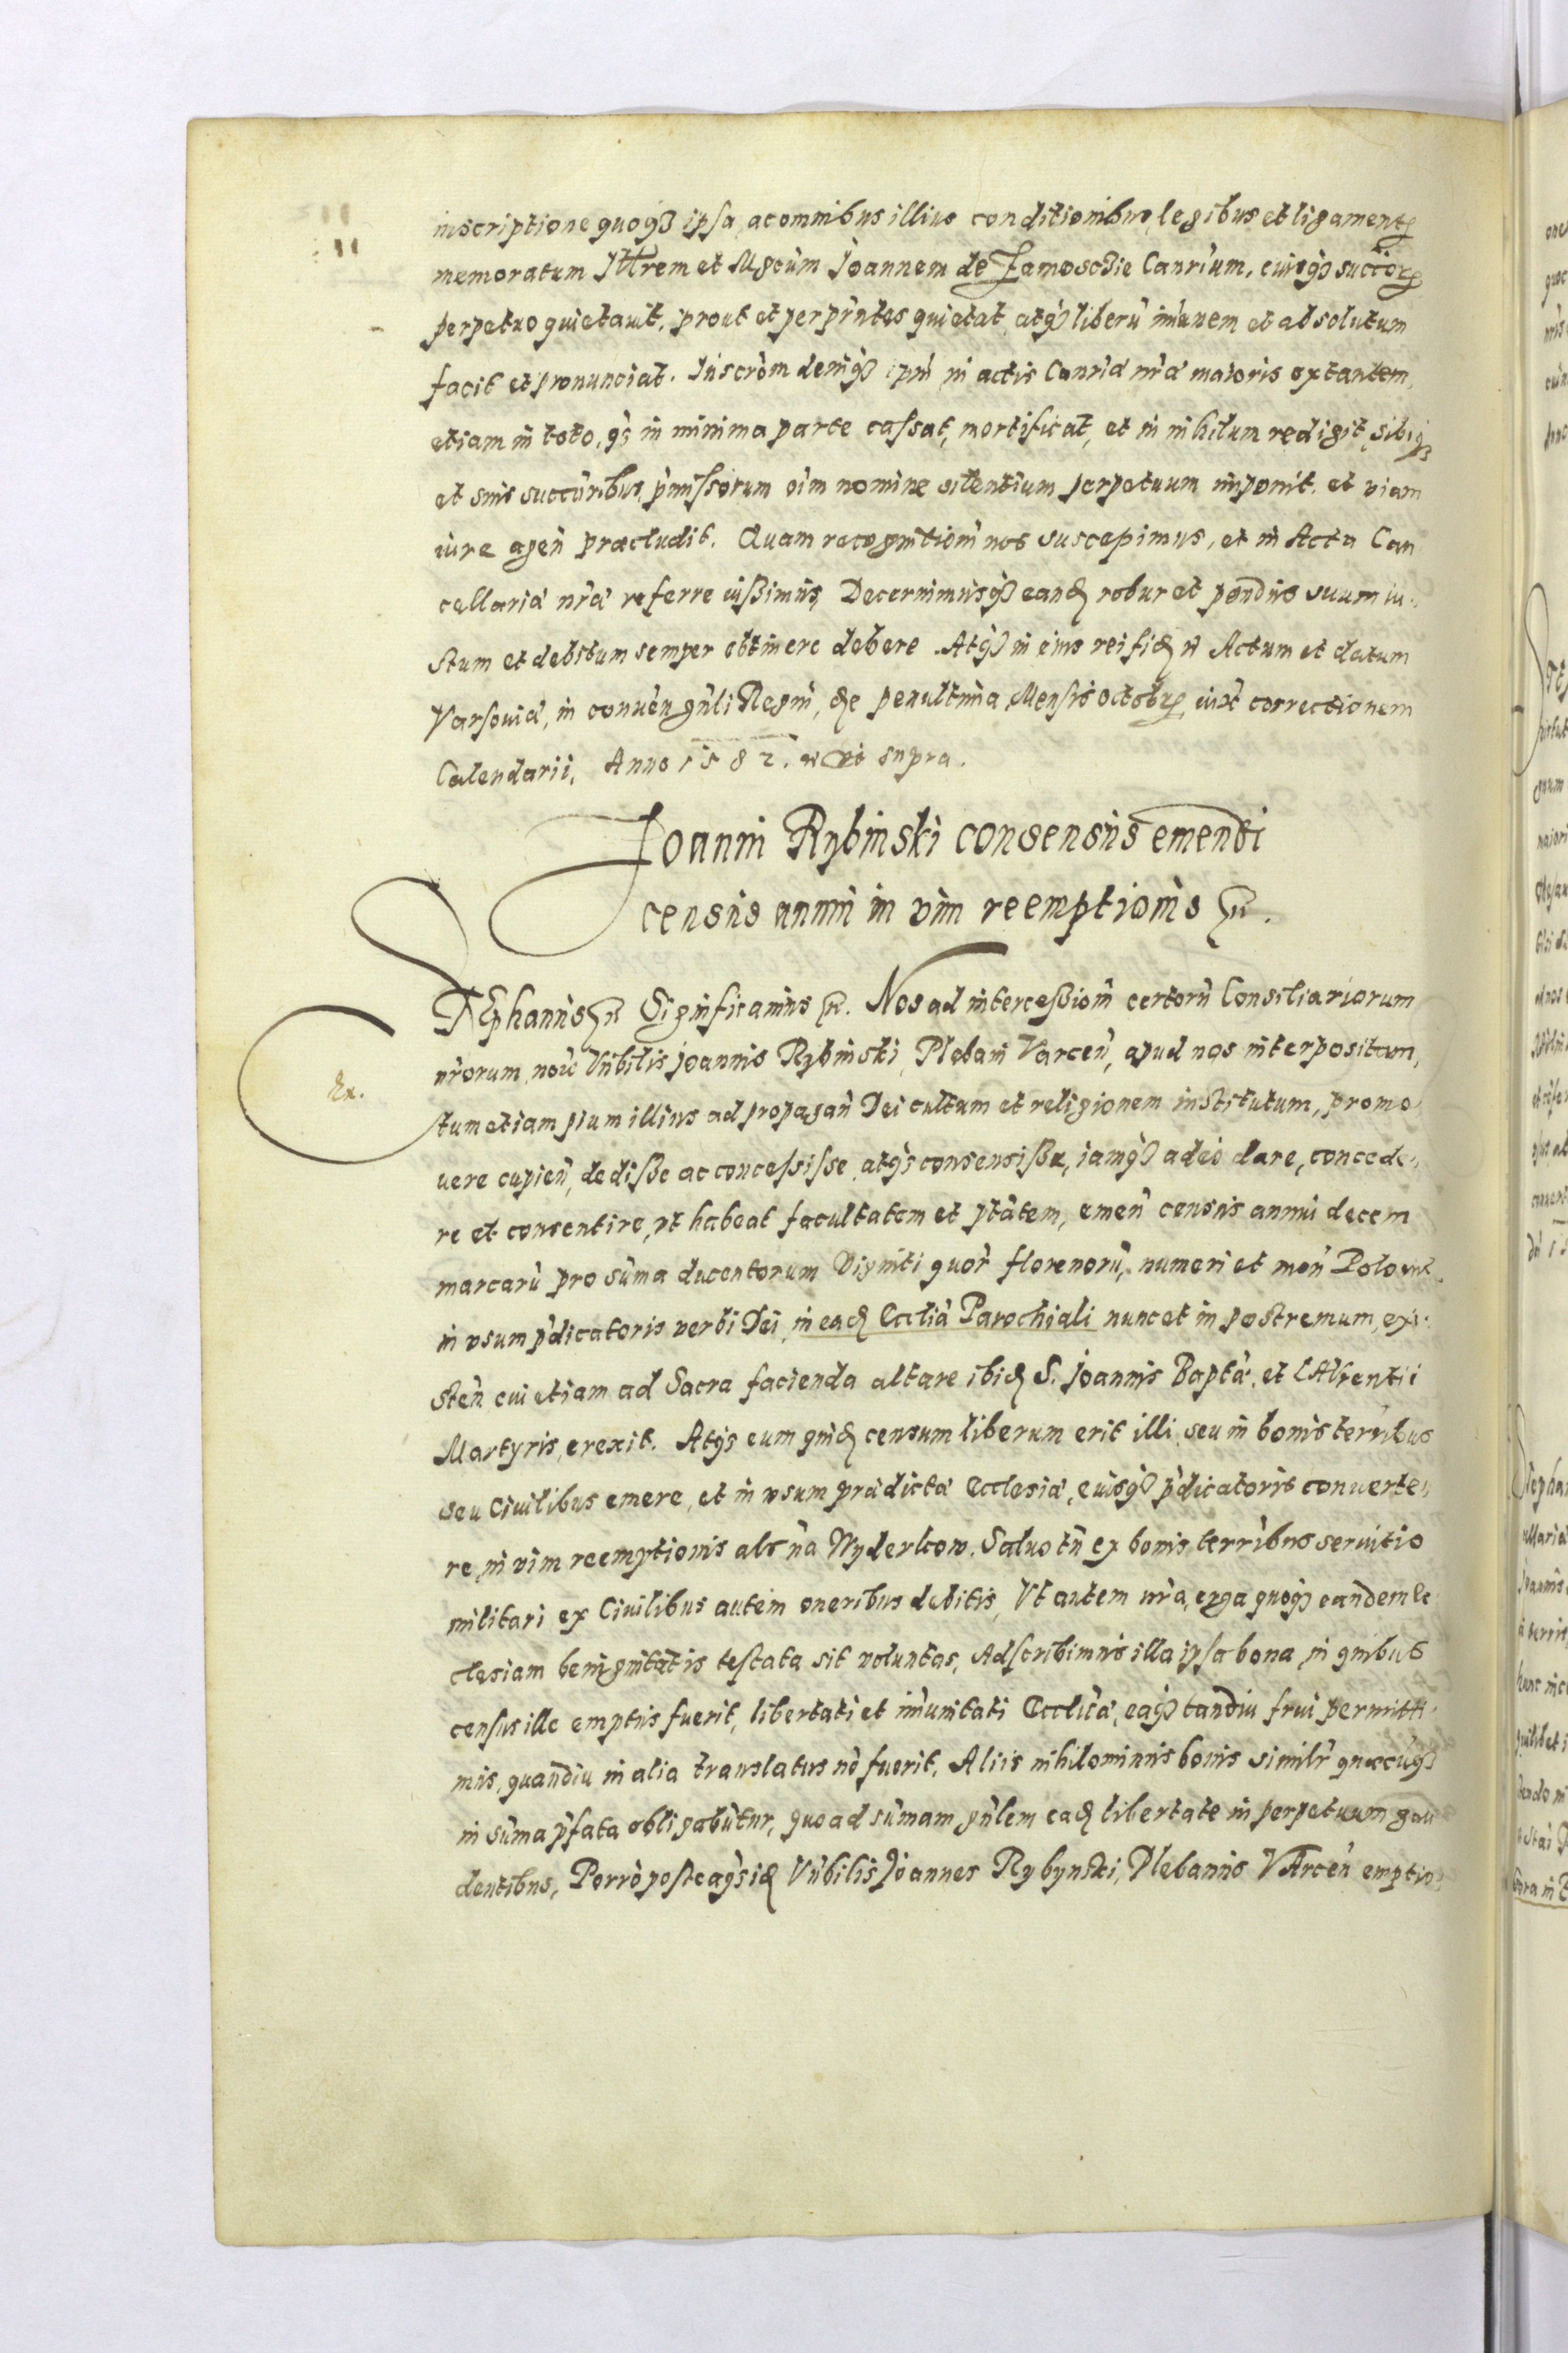 inscriptione quoqȝ ipsa, ac omnibus illius conditionibus, legibus et ligament[is]
memoratum Illrem et Mgcum Joannem de Zamosczie Canrium, eiusqȝ succor[es]
perpetuo quietavit, prout et per pn̄tes quietat, atqȝ liberū im̄unem et absolutum
facit et pronunciat. Inscrōm deniqȝ ipm̄ in actis Canriæ nr̄æ maioris extantem,
etiam in toto, qȝ in minima parte cassat, mortificat, et in nihilum redigit, sibiqȝ
et suis succūribus, p̄missorum oīm nomine silentium perpetuum imponit, et viam
iure agen̄ præcludit. Quam recognitiom̄ nos suscepimus, et in Acta Can
cellariæ nr̄æ referre iussimus, Decernimusqȝ eand. robur et pondus suum iu
stum et debitum semper obtinere debere. Atqȝ in eius rei fid. etc Actum et datum
Varsoviæ, in conven̄ gn̄li Regni, die penultima Mensis octobr. iuxt correctionem
Calendarii, Anno 1582. etc ut supra.
Joanni Rybinski consensus emendi
census annui in vim reemptionis etc.
STEphanus etc Significamus etc. Nos ad intercessiom̄ certorū Consiliariorum
nr̄orum, noīe Vn̄bilis Joannis Rybinski, Plebani Varcen̄, apud nos interpositam,
Ex.
tum etiam pium illius ad propagan̄ Dei cultum et religionem institutum, promo
uere cupien̄, dedisse ac concessisse, atqȝ consensisse, iamqȝ adeo dare, concede
re et consentire, ut habeat facultatem et ptātem, emen̄ census annui decem
marcarū pro sūma ducentorum viginti quor̄ florenorū, numeri et mon̄ Polon
in usum p̄dicatoris verbi Dei, in ead. Ecclīa Parochiali nunc et in postremum, exi
sten̄ cui etiam ad Sacra facienda altare ibid. S. Joannis Baptæ, et Laurentii
Martyris, erexit. Atqȝ eum quid. censum liberum erit illi, seu in bonis terrībus
seu Civilibus emere, et in usum prædictæ Ecclesiæ, eiusqȝ p̄dicatoris converte
re, in vim reemptionis als na Wyderkow. Salvo tn̄ ex bonis terrībus servitio
militari ex Civilibus autem oneribus debitis, Vt autem nr̄a, erga quoqȝ eandem Ec
clesiam benignitatis testata sit voluntas, Adscribimus illa ipsa bona, in quibus
census ille emptus fuerit, libertati et im̄unitati Ecclīcæ, eaqȝ tandiu frui permitti
mus, quandiu in alia translatus nō fuerit, Aliis nihilominus bonis similr̄ quæcūqȝ
in sūma p̄fata obligabūtur, quo ad sūmam pn̄lem ead. libertate in perpetuum gau
dentibus, Porrò posteaqȝ id. Vn̄bilis Joannes Rybynski, Plebanus Varcen̄ emptio